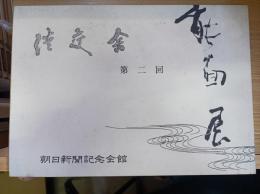 能画展
淡交会
第二回
朝日新聞記念会館